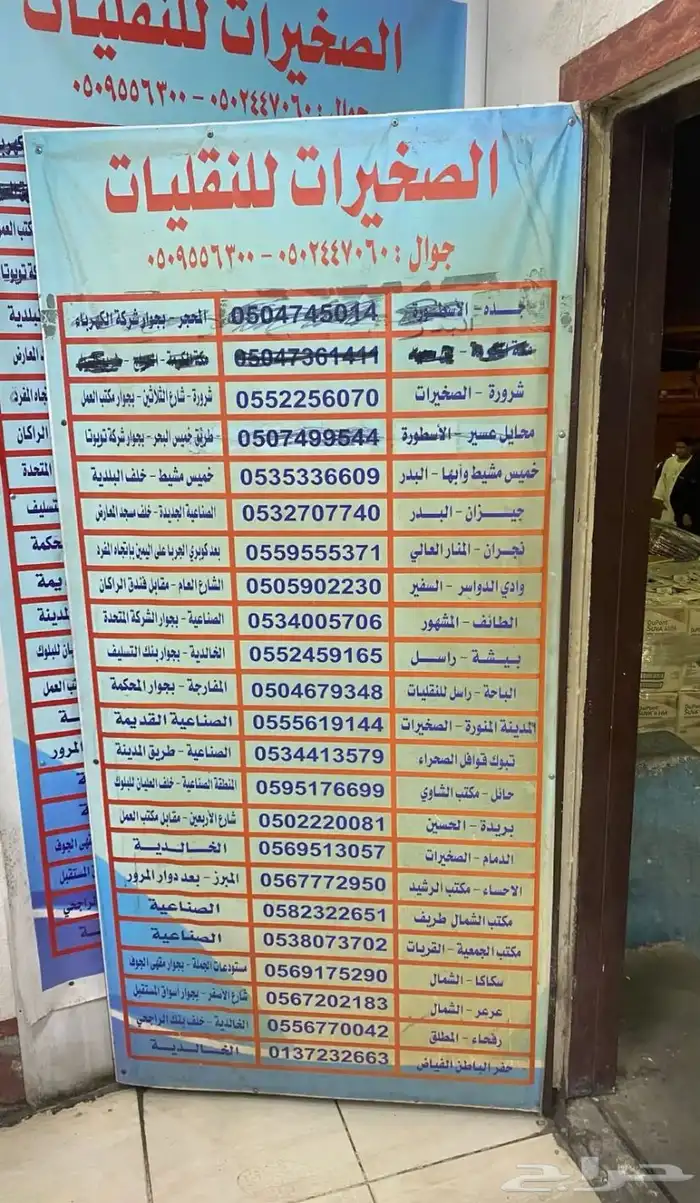 الصخيرات للنقليات
جوال : ٠٥٠٢٤٤٧٠٦٠ - ٠٥٠٩٥٥٦٣٠٠
الصخيرات للنقليات
جوال : ٠٥٠٢٤٤٧٠٦٠ - ٠٥٠٩٥٥٦٣٠٠
جــده - الأسطورة 0504745014 المحجر - بجوار شركة الكهرباء
البدر
05047361411
شرورة - الصخيرات 0552256070 شرورة - شارع الثلاثين - بجوار مكتب العمل
محايل عسير - الأسطورة 0507499544 طريق خميس البحر - بجوار شركة تويوتا
خميس مشيط وأبها - البدر 0535336609 خميس مشيط - خلف البلدية
جيزان - البدر 0532707740 الصناعية الجديدة - خلف مسجد المعارض
نجران - المنار العالي 0559555371 بعد كوبري الجربا على اليمين بإتجاه المفره
وادي الدواسر - السفير 0505902230 الشارع العام - مقابل فندق الراكان
الطائف - المشهور 0534005706 الصناعية - بجوار الشركة المتحدة
بيشة - راسل 0552459165 الخالدية - بجوار بنك التسليف
الباحة - راسل للنقليات 0504679348 المفارجة - بجوار المحكمة
المدينة المنورة - الصخيرات 0555619144 الصناعية القديمة
تبوك قوافل الصحراء 0534413579 الصناعية - طريق المدينة
حائل - مكتب الشاوي 0595176699 المنطقة الصناعية - خلف العليان للبلوك
بريدة - الحسين 0502220081 شارع الأربعين - مقابل مكتب العمل
الدمام - الصخيرات 0569513057 الخالدية
الاحساء - مكتب الرشيد 0567772950 المبرز - بعد دوار المرور
مكتب الشمال طريف 0582322651 الصناعية
مكتب الجمعية - القريات 0538073702 الصناعية
سكاكا - الشمال 0569175290 مستودعات الجملة - بجوار مقهى الجوف
عرعر - الشمال 0567202183 شارع الأسفر - بجوار أسواق المستقبل
رفحاء - المطلق 0556770042 الخالدية - خلف بنك الراجحي
حفر الباطن الفياض 0137232663 الخالدية
حراج